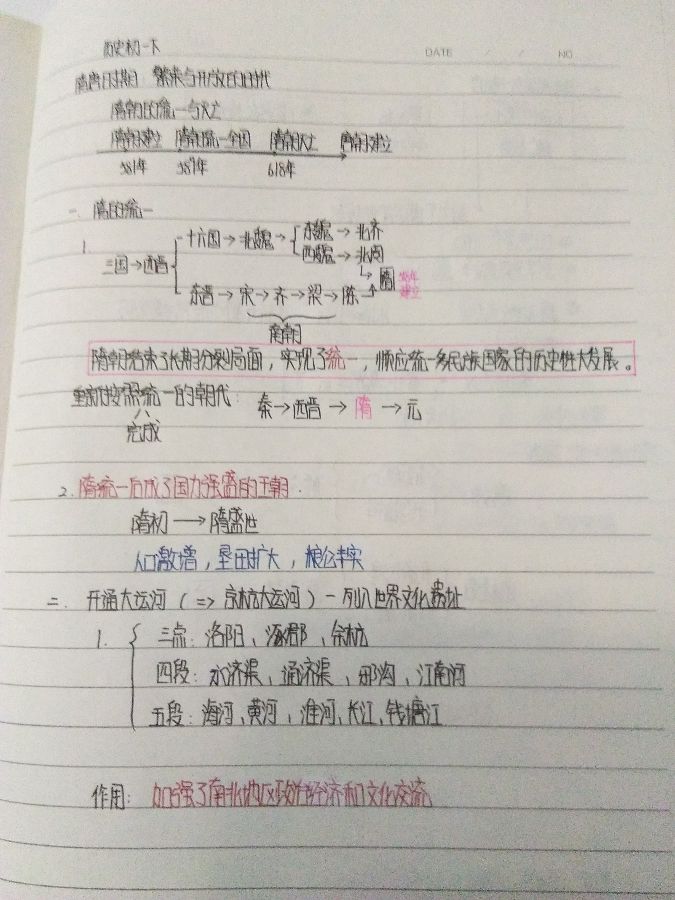 历史初一下
DATE / / NO
隋唐时期：繁荣与开放的时代
隋朝的统一与灭亡
隋朝建立 隋朝统一全国 隋朝灭亡 唐朝建立
581年 589年 618年
一、隋的统一
1. 三国→西晋
十六国→北魏→ 东魏→北齐
西魏→北周
→隋 581年建立
东晋→宋→齐→梁→陈
南朝
隋朝结束了长期分裂局面，实现了统一，顺应统一多民族国家的历史性大发展。
重新按照统一的朝代：秦→西晋→隋→元
完成
2. 隋统一后成了国力强盛的王朝．
隋初→隋盛世
人口激增，垦田扩大，粮仓丰实
二、开通大运河（=>京杭大运河）－列入世界文化遗址
1. 三点：洛阳、涿郡、余杭
四段：永济渠、通济渠、邗沟、江南河
五段：海河、黄河、淮河、长江、钱塘江
作用：加强了南北地区政治经济和文化交流